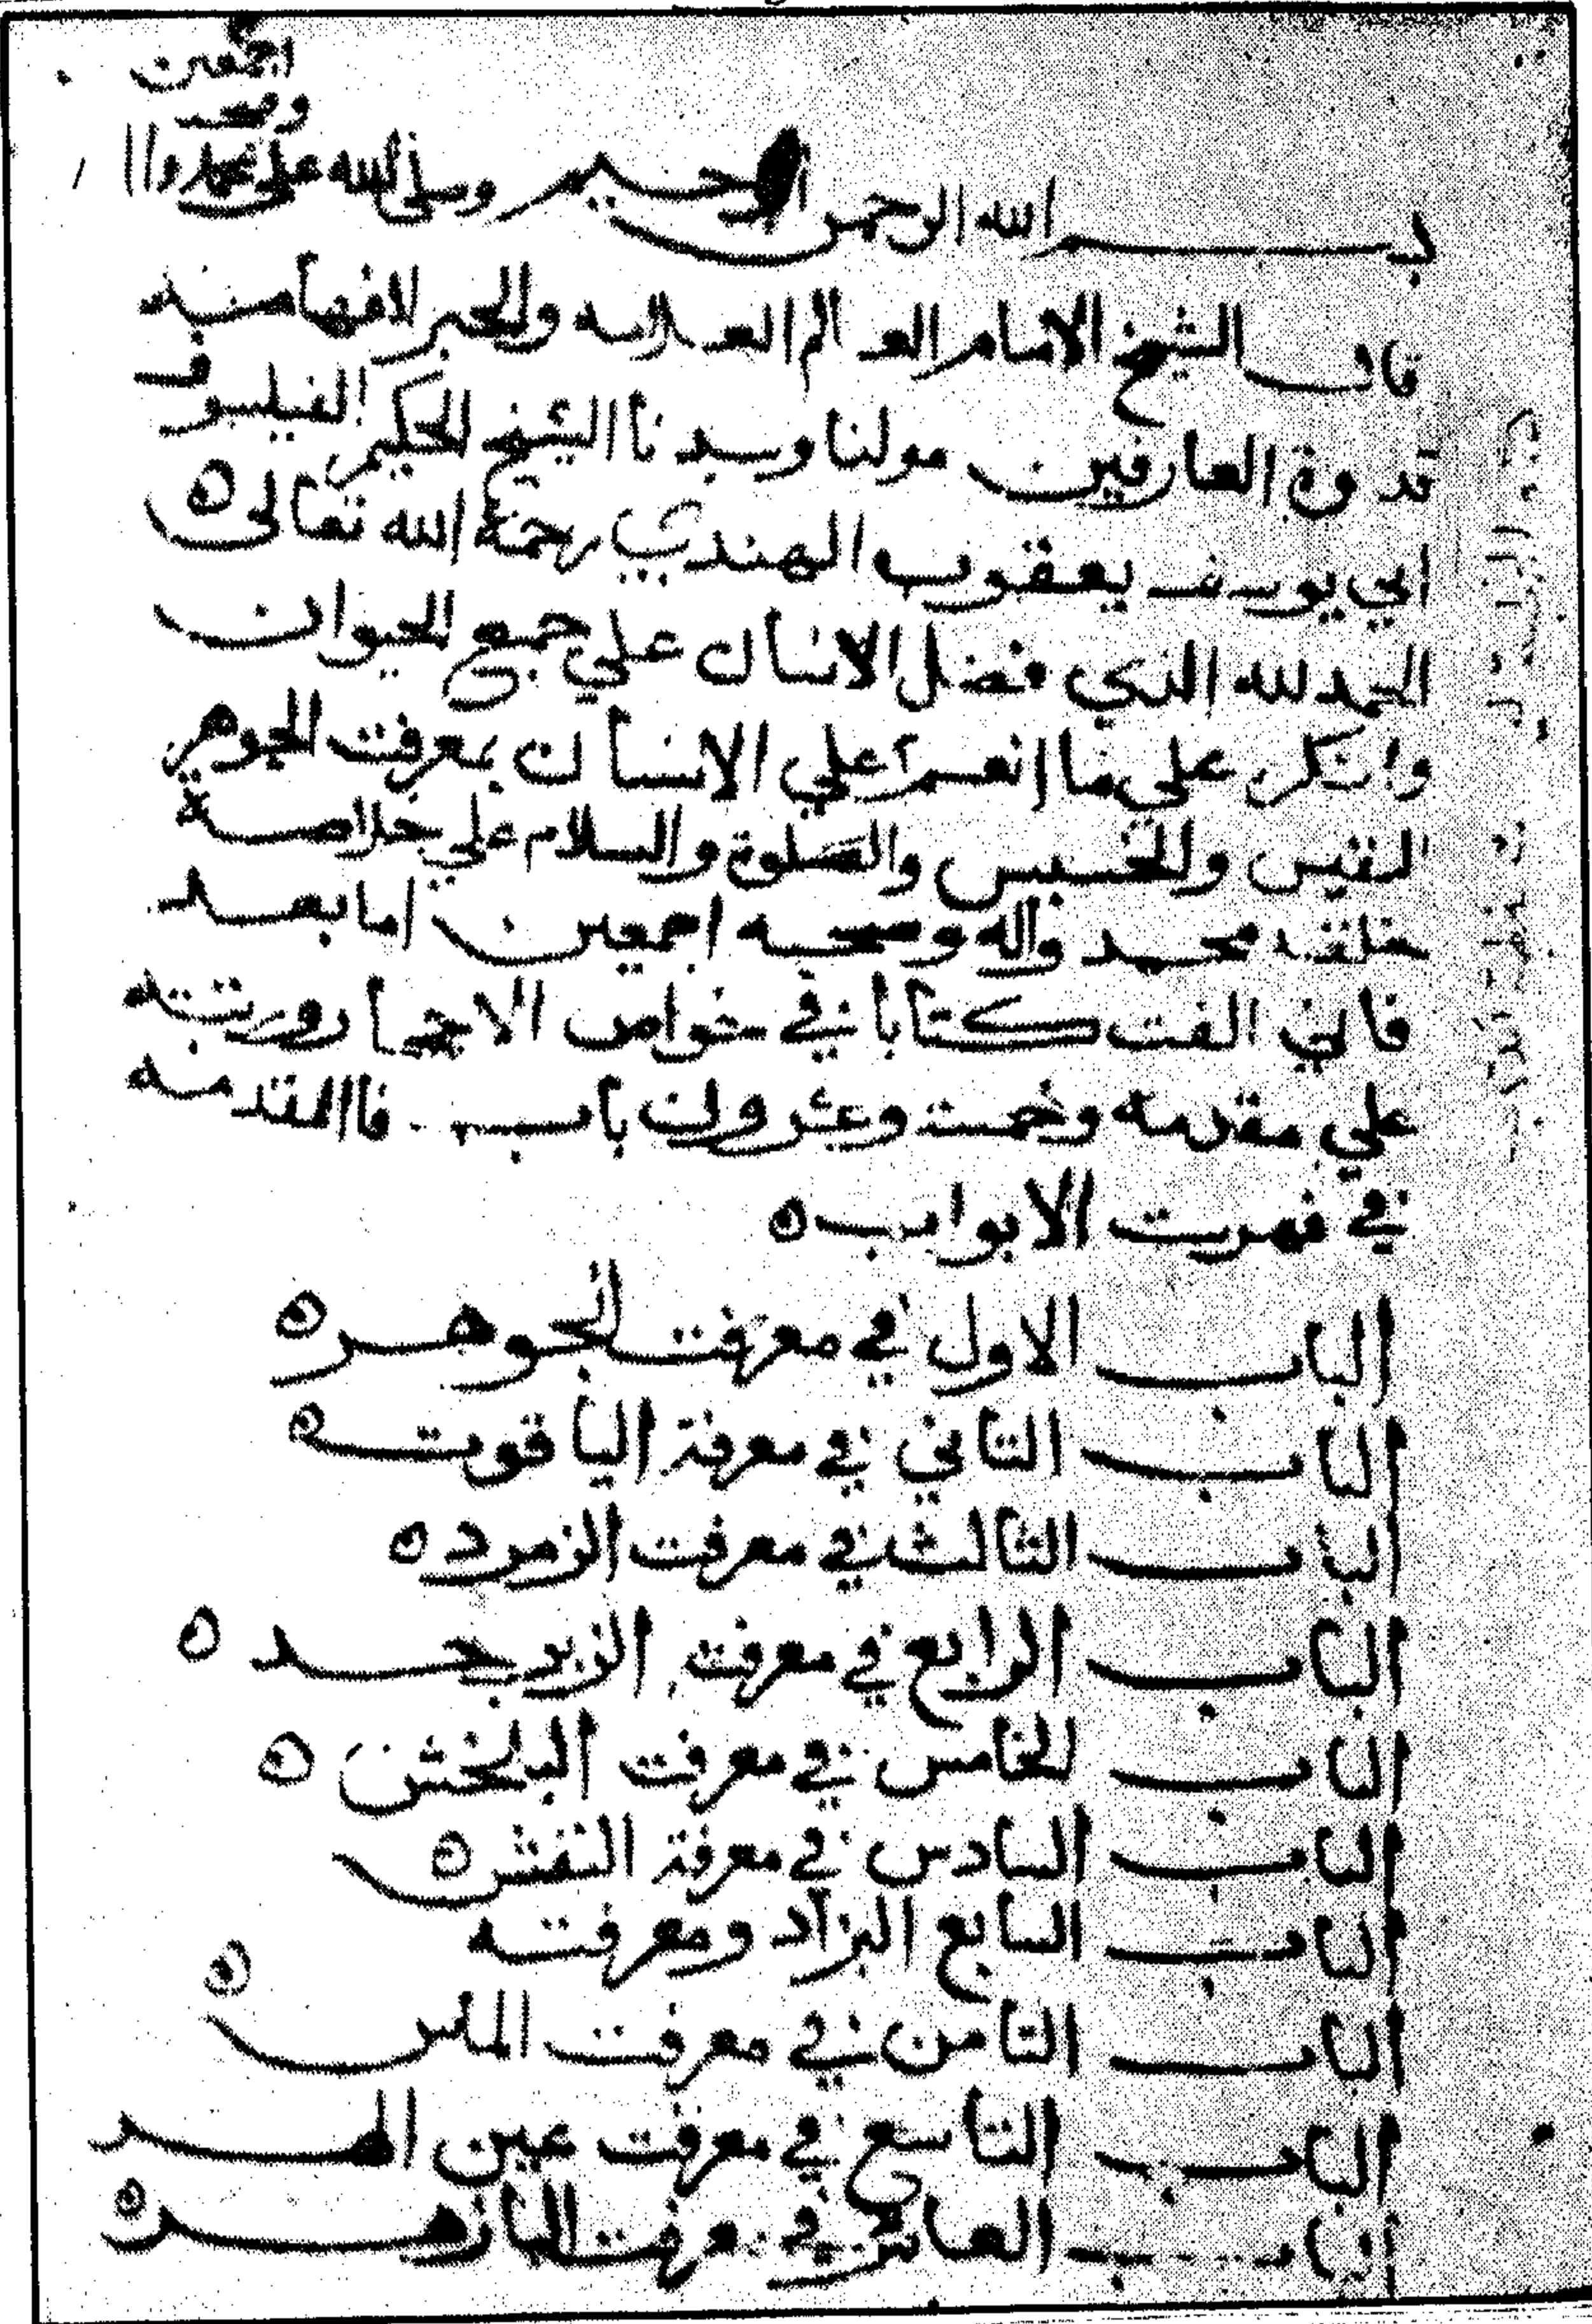 بسم الله الرحمن الرحيم وسلي الله علي محمد واا
وصحبه
اجمعين
قال الشيخ الامام العالم العلامه والحبر الافهامنه
قدوة العارفين مولنا وسيدنا الشيخ الحكيم الفيلسوف
ابي يوسف يعقوب الهندي رحمة الله تعالى ه
الحمد لله الذي فضل الانسان علي جميع الحيوان
واشكر علي ما انعم علي الانسان بمعرفت الجوهر
النفيس والخسيس والصلوة والسلام علي خلاصة
خلقه محمد واله وصحبه اجمعين اما بعد
فاني الفت كتابا في خواص الاحجار ورتبته
علي مقدمه وخمست وعشرون باب فاالمقدمه
في فهرست الابواب ه
الباب الاول في معرفت الجوهر ه
الباب التاني في معرفة الياقوت ه
الباب الثالث في معرفت الزمرد ه
الباب الرابع في معرفت الزبرجد ه
الباب الخامس في معرفت البلخش ه
الباب السادس في معرفة النفش ه
الباب السابع البزاد ومعرفته
الباب التامن في معرفت الماس ه
الباب التاسع في معرفت عين الهر
الباب العاشر في معرفت البازهر ه